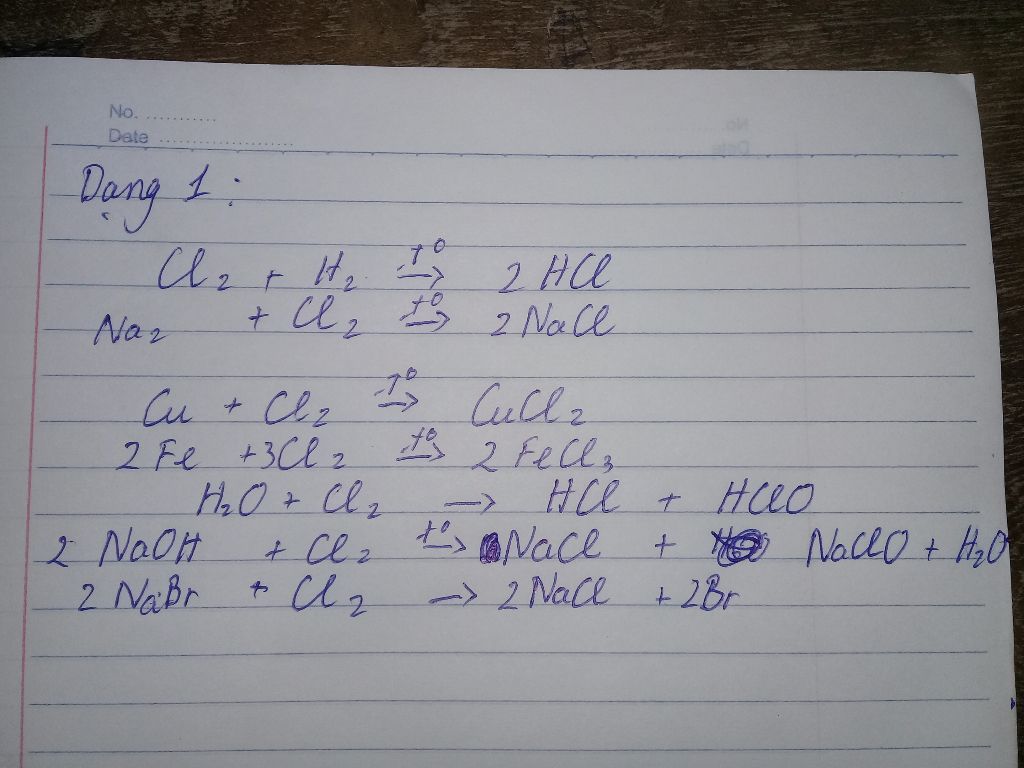 No. ...........
Date ......................
Dạng 1:
Cl₂ + H₂ →(t⁰) 2HCl
Na₂ + Cl₂ →(t⁰) 2NaCl
Cu + Cl₂ →(t⁰) CuCl₂
2Fe + 3Cl₂ →(t⁰) 2FeCl₃
H₂O + Cl₂ → HCl + HClO
2 NaOH + Cl₂ →(t⁰) NaCl + NaClO + H₂O
2 NaBr + Cl₂ → 2NaCl + 2Br